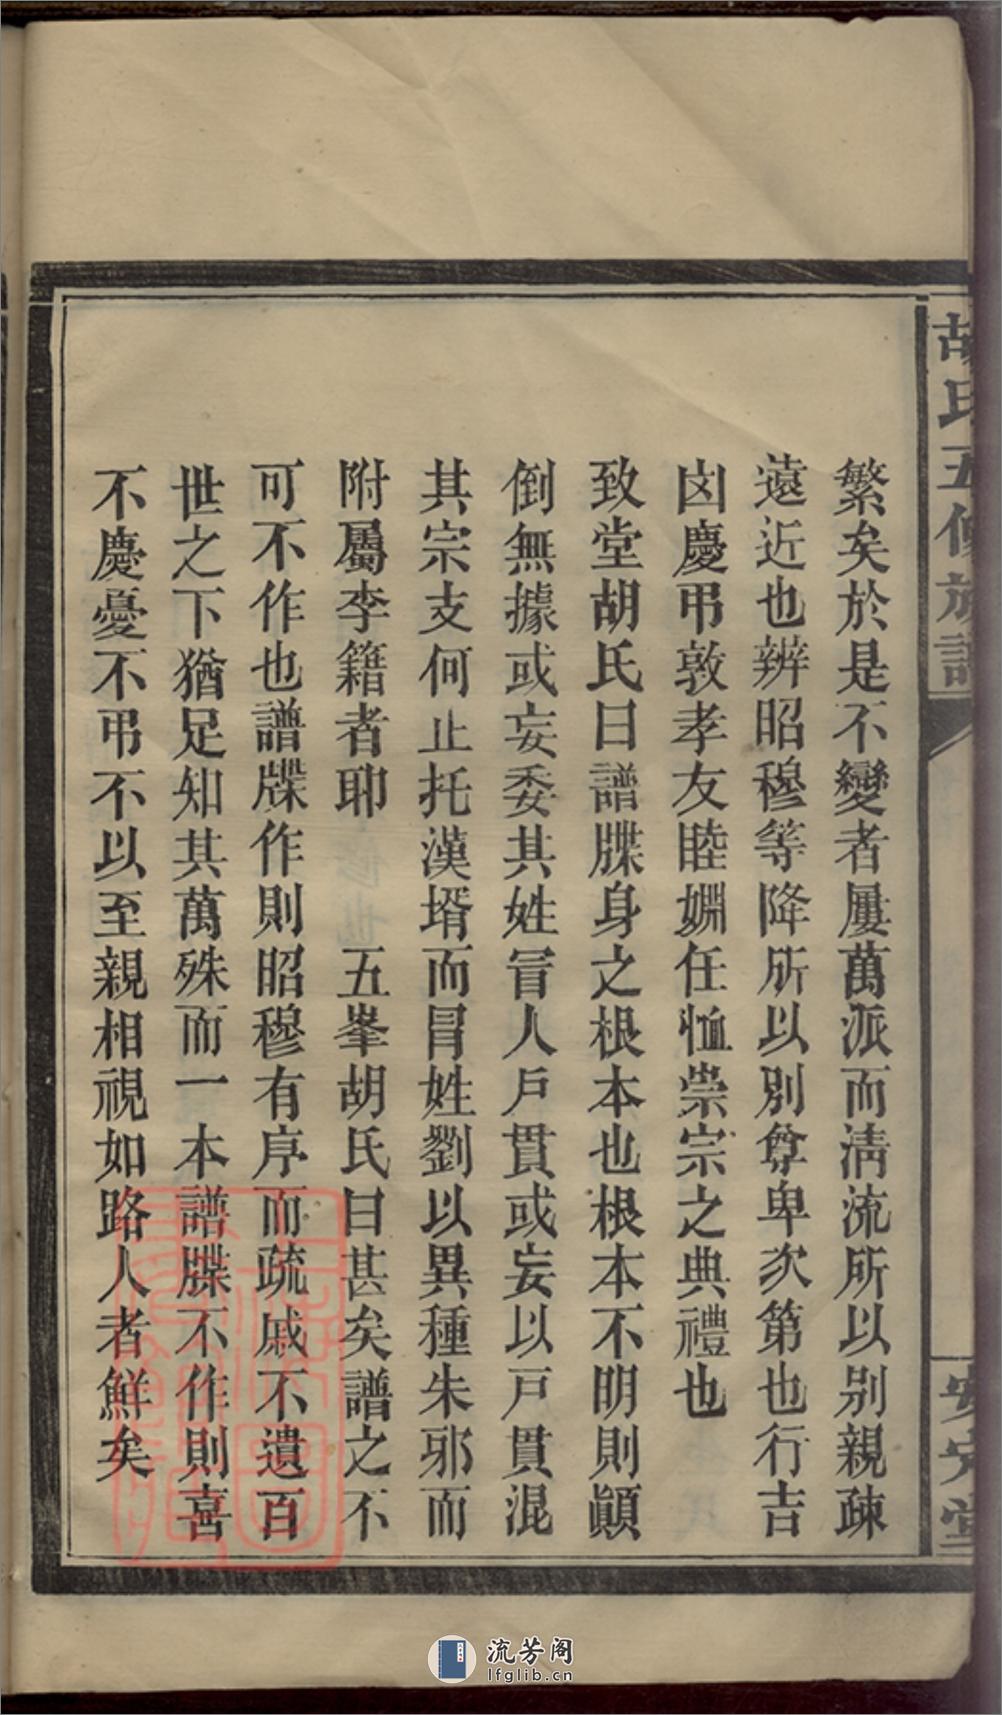 胡氏五修族譜
安定堂
繁矣於是不變者屢萬派而淸流所以别親疎
遠近也辨昭穆等降所以別尊卑次第也行吉
凶慶弔敦孝友睦婣任恤崇宗之典禮也
致堂胡氏曰譜牒身之根本也根本不明則顚
倒無據或妄委其姓冒人戶貫或妄以戸貫混
其宗支何止托漢壻而冐姓劉以異種朱邪而
附屬李籍者耶　五峯胡氏曰甚矣譜之不
可不作也譜牒作則昭穆有序而疏戚不遺百
世之下猶足知其萬殊而一本譜牒不作則喜
不慶憂不弔不以至親相視如路人者鮮矣
流芳阁
lfglib.cn